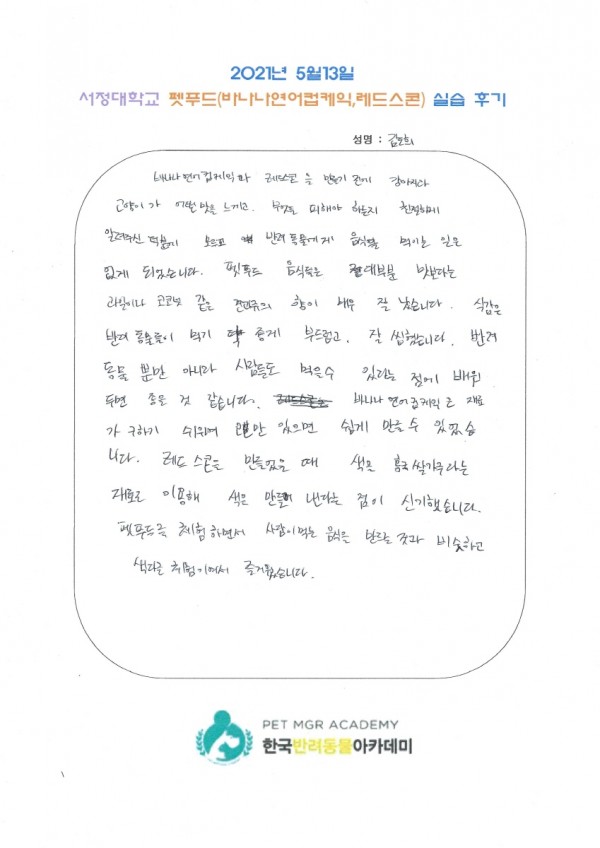 2021년 5월13일
서정대학교 펫푸드(바나나연어컵케익,레드스콘) 실습 후기
성명 :
바나나 연어컵케익과 레드스콘을 만들기 전에 강아지와
고양이가 어떤 맛을 느끼고, 무엇을 피해야 하는지 친절하게
알려주신 덕분에 모르고 반려동물에게 음식을 먹이는 일은
없게 되었습니다. 펫푸드 음식들은 대부분 맛보다는
과일이나 코코넛 같은 견과류의 향이 매우 잘 났습니다. 식감은
반려 동물들이 먹기 좋게 부드럽고, 잘 씹혔습니다. 반려
동물 뿐만 아니라 사람들도 먹을수 있다는 점에 배워
두면 좋을 것 같습니다. 바나나 연어컵케익은 재료
가 구하기 쉬워서 만 있으면 쉽게 만들 수 있었습
니다. 레드 스콘을 만들었을 때 색을 홍국쌀가루라는
재료로 이용해 색을 만들어 낸다는 점이 신기했습니다.
펫푸드를 체험하면서 사람이 먹는 음식을 만드는 것과 비슷하고
색다른 체험기에서 즐거웠습니다.
PET MGR ACADEMY
한국반려동물아카데미